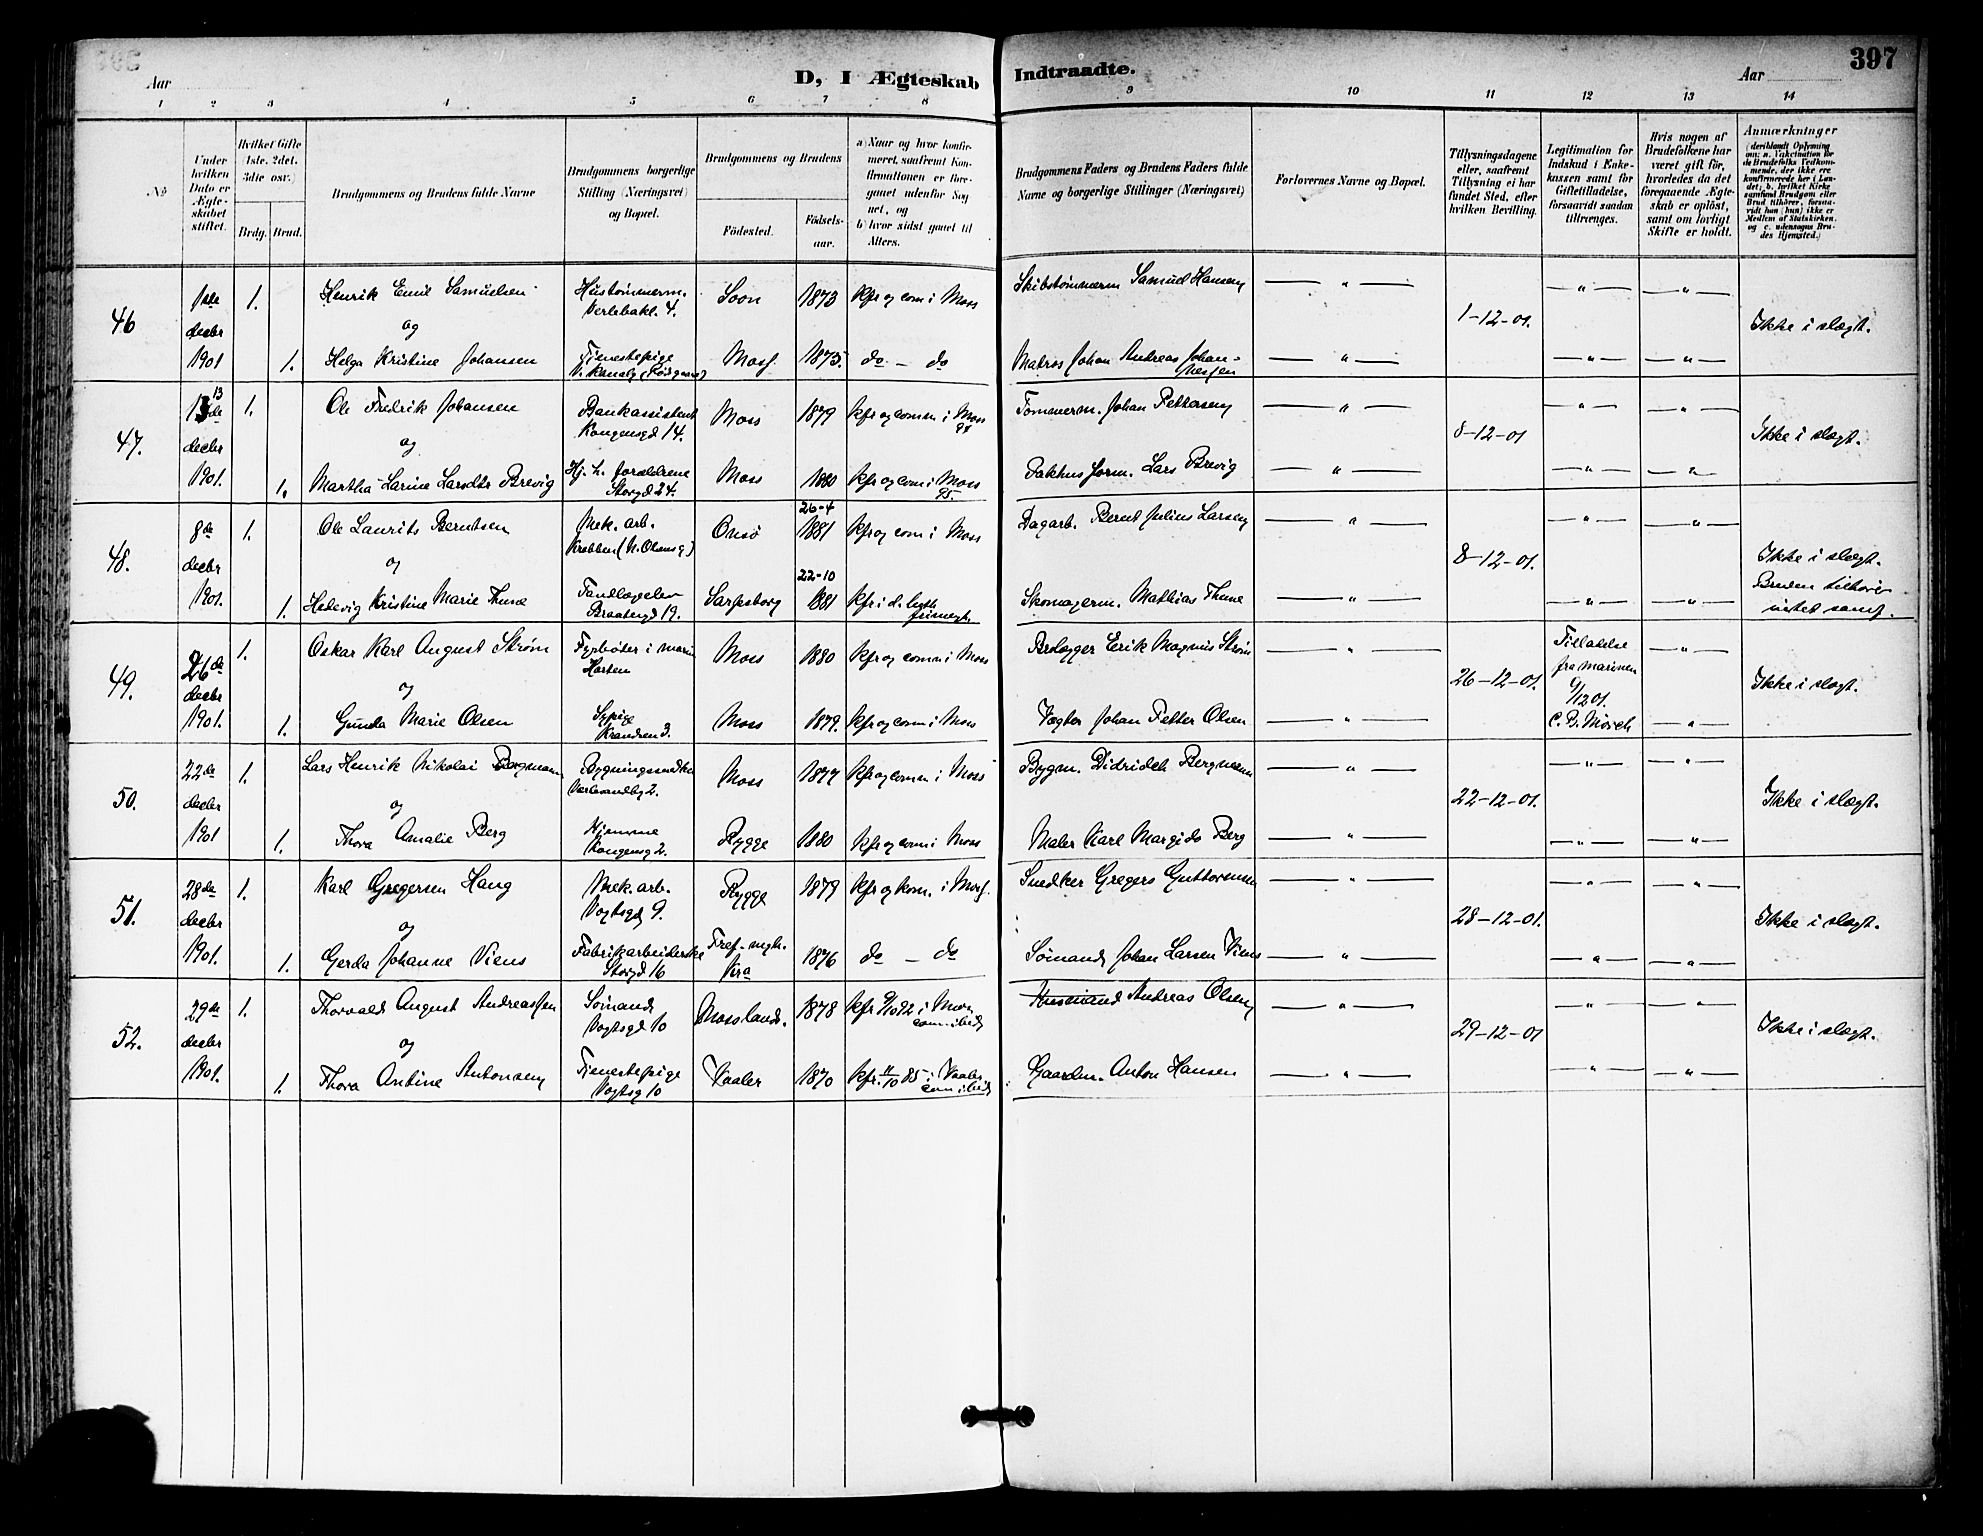 397
Aar
D, I Ægteskab Indtraadte.
Aar
1 2 3 4 5 6 7 8 9 10 11 12 13 14
No
Under hvilken Dato er Ægteskabet stiftet.
Hvilket Gifte (1ste, 2det, 3die osv.)
Brdg. Brud.
Brudgommens og Brudens fulde Navne
Brudgommens borgerlige Stilling (Næringsvei) og Bopæl.
Brudgommens og Brudens
Fødested.
Fødselsaar.
a) Naar og hvor konfirmeret, saafremt Konfirmationen er foregaaet udenfor Sognet, og
b) hvor sidst gaaet til Alters.
Brudgommens Faders og Brudens Faders fulde Navne og borgerlige Stillinger (Næringsvei)
Forlovernes Navne og Bopæl.
Tillysningsdagene eller, saafremt Tillysning ei har fundet Sted, efter hvilken Bevilling.
Legitimation for Indskud i Enkekassen samt for Giftetilladelse, forsaavidt saadan tiltrænges.
Hvis nogen af Brudefolkene har været gift før, hvorledes da det foregaaende Ægteskab er opløst, samt om lovligt Skifte er holdt.
Anmærkninger (deriblandt Oplysning om: a. Vakcination for de Brudefolks Vedkommende, der ikke ere konfirmerede her i Landet; b. hvilket Kirkesamfund Brudgom eller Brud tilhører, forsaavidt han (hun) ikke er Medlem af Statskirken, og c. udensogns Brudes Hjemsted.)
46 1ste decbr 1901 1. Henrik Emil Samuelsen Hustømmerm. Verlebakk. 4. Soon 1873 kfr og com i Moss Skibstømmerm Samuel Hansen 1-12-01. Ikke i slægt.
og
1. Helga Kristine Johansen Tjenestepige Moss 1875. do - do Matros Johan Andreas Johannessen
47. 13 de decbr 1901. 1. Ole Fredrik Johansen Bankassistent Kongensgd 14. Moss 1879 kfr og comm i Moss Tømmerm. Johan Pettersen 8-12-01 Ikke i slægt.
og
1. Martha Larine Larsdtr Brevig Hj. h. forældrene Storgd 24. Moss 1880 kfr og com i Moss 95. Pakhusform. Lars Brevig
48. 8de decbr 1901. 1. Ole Laurits Berntsen Mek. arb. Krabben (N. Olsens g.) Onsø 26-4 1881 kfr og com i Moss Dagarb. Bernt Julius Larsen 8-12-01. Ikke i slægt.
og
1. Hedevig Kristine Marie Thune Tandlægeelev Braatengd 19. Sarpsborg 22-10 1881 kfr i d. luth. frimenigh. Skomagerm. Mathias Thune Bruden tilhører intet samf.
49. 26de decbr 1901. 1. Oskar Karl August Strøm Fyrbøter i marin Horten Moss 1880 kfr og comm i Moss Brolægger Erik Magnus Strøm 26-12-01. Tilladelse fra marinen 9/12 01. C. B. Mørch Ikke i slægt.
og
1. Gunda Marie Olsen Sypige Moss 1879. kfr og comm i Moss Vægter Johan Petter Olsen
50. 22de decbr 1901 1. Lars Henrik Nikolai Bergmann Bygningssnedker Moss 1877 kfr og comm i Moss Bygm. Didrich Bergmann 22-12-01. Ikke i slægt.
og
1. Thora Amalie Berg Hjemme Kongensg 2. Rygge 1880 kfr og com i Moss Maler Karl Margido Berg
51. 28de decbr 1901. 1. Karl Gregersen Haug Mek. arb. Vogtsgd 9. Rygge 1879 kfr og kom. i Moss. Snedker Gregers Guttormsen 28-12-01. Ikke i slægt.
og
1. Gerda Johanne Viens Fabrikarbeiderske Storgd 16 Tref. mgh. Kra 1876 do - do Sømand Johan Larsen Viens
52. 29de decbr 1901. 1. Thorvald August Andreassen Sømand Vogtsgd 10 Mosslands. 1878 kfr 9/10 92 i Moss com. ibid. Husmand Andreas Olsen 29-12-01 Ikke i slægt.
og
1. Thora Antine Antonsen Tjenestepige Vogtsg 10 Vaaler 1870 kfr. 11/10 85 i Vaaler com. ibid. Gaardm. Anton Hansen